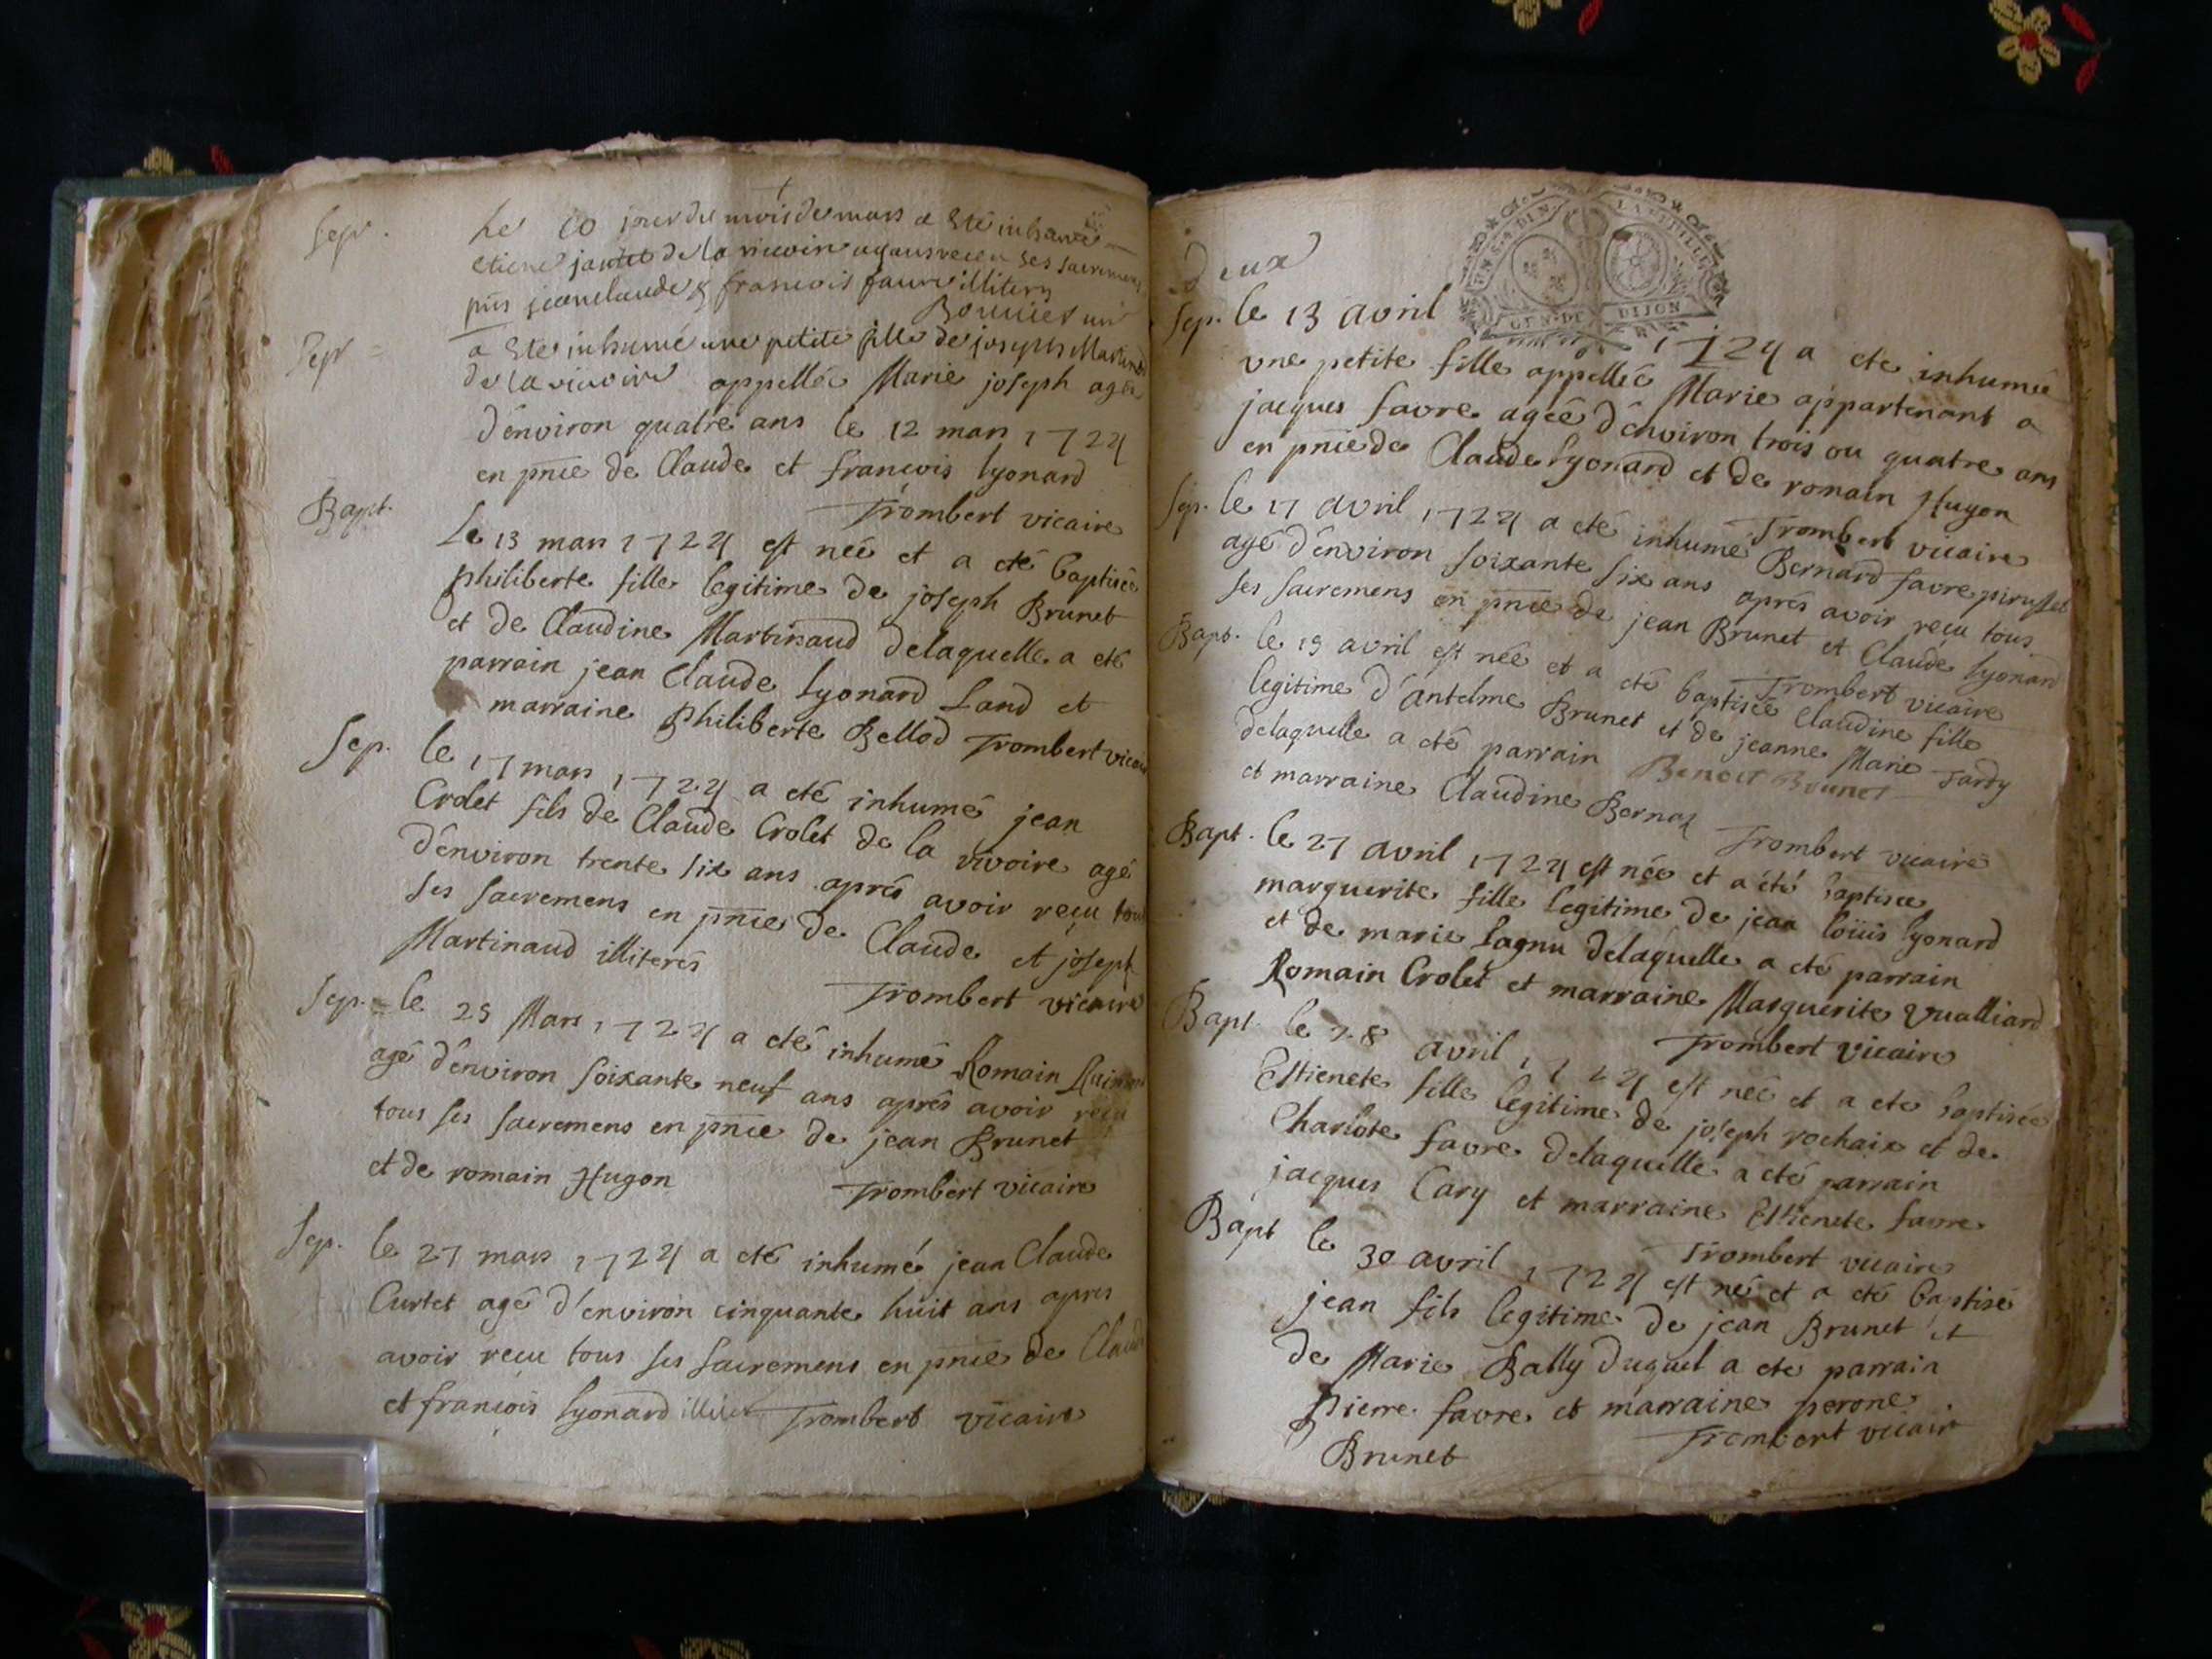 Sepr. Le 10 jour du mois de mars a Eté inhumé
etiene de la vieoire ayans receu ses sacremens
pñs jeanclaude & francois faure illiterés
Sepr a Eté inhumé une petite fille de joseph Martinaud
de la vievoire appellée Marie joseph agée
d'environ quatre ans le 12 mars 1724
en pnce de Claude et françois lyonard
Trombert vicaire
Bapt. Le 13 mars 1724 est neé et a eté baptiseé
philiberte fille legitime de joseph Brunet
et de Claudine Martinaud delaquelle a eté
parrain jean Claude lyonard Land et
marraine philiberte Bellod Trombert vicaire
Sep. le 17 mars 1724 a eté inhumé jean
Crolet fils de Claude Crolet de la vivoire agé
d'environ trente six ans aprés avoir reçu tous
ses sacremens en pnce de Claude et joseph
Martinaud illiterés
Trombert vicaire
Sep. le 25 Mars 1724 a eté inhumé Romain
agé d'environ soixante neuf ans aprés avoir reçu
tous ses sacremens en pnce de jean Brunet
et de romain Hugon Trombert vicaire
Sep. le 27 mars 1724 a eté inhumé jean Claude
Curtet agé d'environ cinquante huit ans apres
avoir reçu tous ses sacremens en pnce de Claude
et françois lyonard Trombert vicaire
deux
GEN. DE DIJON
Sep. le 13 avril 1724 a ete inhumeé
une petite fille appelleé Marie appartenant a
jacques favre ageé d'environ trois ou quatre ans
en pnce de Claude lyonard et de romain Hugon
Trombert vicaire
Sep. le 17 avril 1724 a eté inhumé Bernard favre
agé d'environ soixante six ans aprés avoir reçu tous
ses sacremens en pnce de jean Brunet et Claude lyonard
Trombert vicaire
Bapt. le 19 avril est neé et a eté baptiseé Claudine fille
legitime d'antelme Brunet et de jeanne Marie Tardy
delaquelle a eté parrain Benoit Brunet
et marraine Claudine Bernaz
Trombert vicaire
Bapt. le 27 avril 1724 est neé et a été baptisee
marguerite fille legitime de jean loüis lyonard
et de marie Lagnu delaquelle a eté parrain
Romain Crolet et marraine Marguerite vualliard
Trombert vicaire
Bapt. le 28 avril 1724 est neé et a eté baptiseé
Estienete fille legitime de joseph rochaix et de
Charlote favre delaquelle a eté parrain
jacques Cary et marraine Estienete favre
Trombert vicaire
Bapt le 30 avril 1724 est né et a eté baptisé
jean fils legitime de jean Brunet et
de Marie Bally duquel a ete parrain
pierre favre et marraine perone
Brunet Trombert vicaire